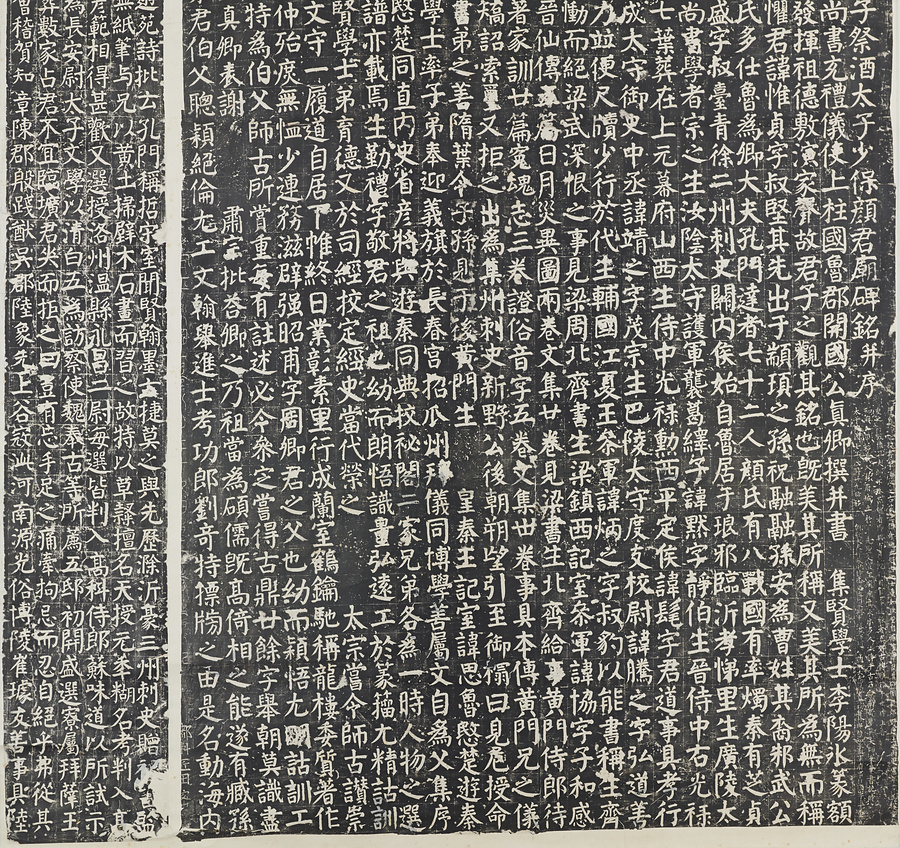 子祭酒太子少保顏君廟碑銘并序
尚書充禮儀使上柱國魯郡開國公真卿撰并書 集賢學士李陽冰篆額
發揮祖德敷演家聲故君子之觀其銘也既美其所稱又美其所為無而稱
懼君諱惟貞字叔堅其先出于顓頊之孫祝融融孫安為曹姓其裔邾武公
氏多仕魯為卿大夫孔門達者七十二人顏氏有八戰國有率燭秦有芝貞
盛字叔臺青徐二州刺史關内侯始自魯居于琅邪臨沂孝悌里生廣陵太
尚書學者宗之生汝陰太守護軍襲葛繹子諱默字靜伯生晉侍中右光祿
七葉葬在上元幕府山西生侍中光祿勳西平定侯諱髦字君道事具孝行
成太守御史中丞諱靖之字茂宗生巴陵太守度支校尉諱騰之字弘道善
力並便尺牘少行於代生輔國江夏王參軍諱炳之字叔豹以能書稱生齊
慟而絕梁武深恨之事見梁周北齊書生梁鎮西記室參軍諱協字子和感
晉仙傳五篇日月災異圖兩卷文集廿卷見梁書生北齊給事黃門侍郎待
著家訓廿篇冤魂志三卷證俗音字五卷文集卅卷事具本傳黃門兄之儀
矯詔索璽又拒之出為集州刺史新野公後朝朔望引至御榻曰見危授命
書弟之善隋葉令子孫見于後黃門生 皇秦王記室諱思魯愍楚遊秦
學士率子弟奉迎義旗於長春宮招瓜州拜儀同博學善屬文自為父集序
愍楚同直内史省彥將與遊秦同典校秘閣二家兄弟各為一時人物之選
譜亦載焉生勤禮字敬君之祖也幼而朗悟識量弘遠工於篆籀尤精詁訓
賢學士弟育德又於司經校定經史當代榮之 太宗嘗令師古讚崇
文守一履道自居下帷終日業彰素里行成蘭室鶴鑰馳稱龍樓委質著作
仲殆庾無恤少連務滋辟强昭甫字周卿君之父也幼而穎悟尤明詁訓工
特為伯父師古所賞重每有註述必令參定嘗得古鼎廿餘字舉朝莫識盡
真卿表謝 肅宗批答卿之乃祖當為碩儒既高倚相之能遂有臧孫
君伯父聰穎絕倫尤工文翰舉進士考功郎劉奇特標牓之由是名動海内
苑詩批云孔門稱哲宋室聞賢翰墨之捷莫之與先歷滁沂豪三州刺史贈秘監
無紙筆与兄以黃土掃壁木石畫而習之故特以草隸擅名天授元年糊名考判入
範相得甚歡又選授洛州溫縣永昌二尉每選皆判入高科侍郎蘇味道以所試示
為長安尉太子文學以清白五為訪察使魏奉古等所薦五邸初開盛選寮屬拜薛王
數家占君不宜臨壙君哭而拒之曰豈有忘手足之痛牽拘忌而忍自絕乎弗從其
稽賀知章陳郡殷踐猷吳郡陸象先上谷寇泚河南源光俗博陵崔璩友善事具陸